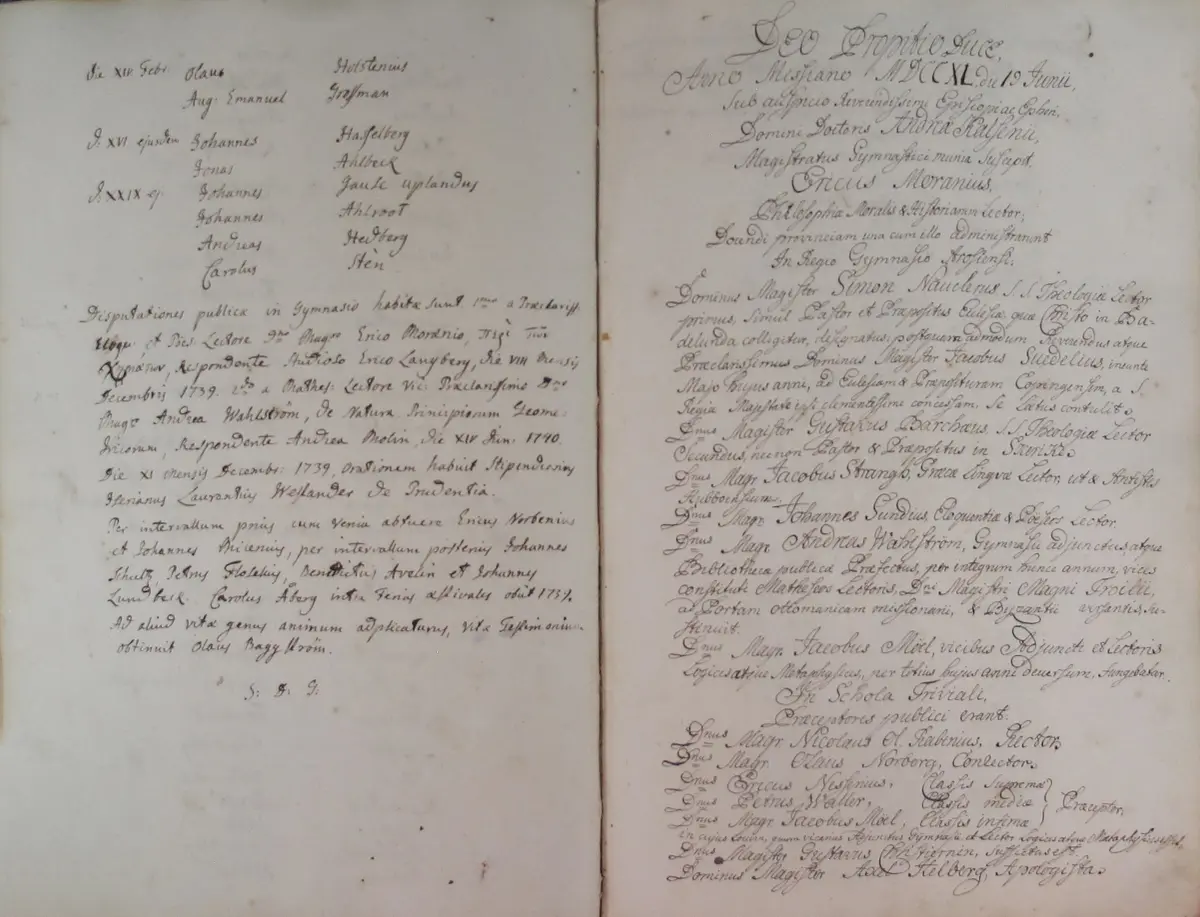 Die XIV Febr. Olaus Holstenius
Aug: Emanuel Grefman
D. XVI ejusdem Johannes Hasselberg
Jonas Ahlbeck
D. XXIX ej. Johannes Gause Uplandus
Johannes Ahlroot
Andreas Hedberg
Carolus Stén
Disputationes publicæ in Gymnasio habitæ sunt a Præclariss.
et Poës Lectore Dno Magro Erico Moranio, περὶ τῶν
Respondente Studioso Erico Laugberg, die VIII mensis
Decembris 1739. 2do a Mathes: Lectore Vic: Præclarissimo Dno
Magro Andrea Wahlström, de Natura Principiorum Geome-
tricorum, Respondente Andrea Molin, die XIV Jun: 1740.
Die XI mensis Decembr: 1739. Orationem habuit Stipendiarius
Laurentius Weslander de Prudentia.
Per intervallum prius cum venia abiere Ericus Norbenius
et Johannes Phicenius, per intervallum posterius Johannes
Schultz, Petrus Benedictus Avelin et Johannes
Lundbeck. Carolus Åberg inter Ferias æstivales obiit 1739.
Ad aliud vitæ genus animum adplicaturus, vitæ Testimonium
obtinuit Olaus Baggström.
S: D: G:
Deo Propitio Duce,
Anno Messiano MDCCXL, die 19 Junii,
Sub auspicio Reverendissimi Episcopi ac Ephori,
Domini Doctoris Andreæ Kalsenii,
Magistratus Gymnastici munia suscepit,
Ericus Moranius,
Philosophiæ Moralis & Historiarum Lector;
Docendi provinciam una cum illo administrarunt
In Regio Gymnasio Arosiensi;
Dominus Magister Simon Nauclerus S. S. Theologiæ Lector
primus, simul Pastor et Præpositus Ecclesiæ quæ Christo in Ba-
delunda colligitur, designatus, postquam admodum Reverendus atque
Præclarissimus Dominus Magister Jacobus Suedelius, ineunte
Majo hujus anni, ad Ecclesiam & Præposituram Copingensem, a S.
Regia Majestate ipsi clementissime concessam, se latus contulit.
Dnus Magister Gustavus Barchæus, S. S. Theologiæ Lector
Secundus, necnon Pastor & Præpositus in Skerike.
Dnus Magr. Jacobus Strangh, Græcæ Lingvæ Lector, ut & Antistes
Hubboensium.
Dnus Magr. Johannes Sundius, Eloquentiæ & Poëseos Lector
Dnus Magr. Andreas Wahlström, Gymnasii adjunctus atque
Bibliothecæ publicæ Præfectus, per integrum hunc annum, vices
constituti Matheseos Lectoris, Dni Magistri Magni Troilii,
ad Portam ottomanicam missionarii, & Byzantii versantis, su-
stinuit.
Dnus Magr. Jacobus Möel, vicibus Adjuncti et Lectoris
Logices atque Metaphysices, per totius hujus anni decursum, fungebatur.
In Schola Triviali,
Præceptores publici erant.
Dnus Magr. Nicolaus Ol. Rabenius, Rector,
Dnus Magr. Olaus Norborg, Conrector,
Dnus Ericus Nessenius, Classis supremæ
Dnus Petrus Waller, Classis mediæ Præceptor,
Dnus Magr. Jacobus Möel, Classis infimæ
in cujus locum, quum vicarius Adjunctus Gymnasii et Lector Logices atque Metaphysices esset,
Dnus Magister Gustavus Christiernin, suffectus est.
Dominus Magister Axel Helberg, Apologista.